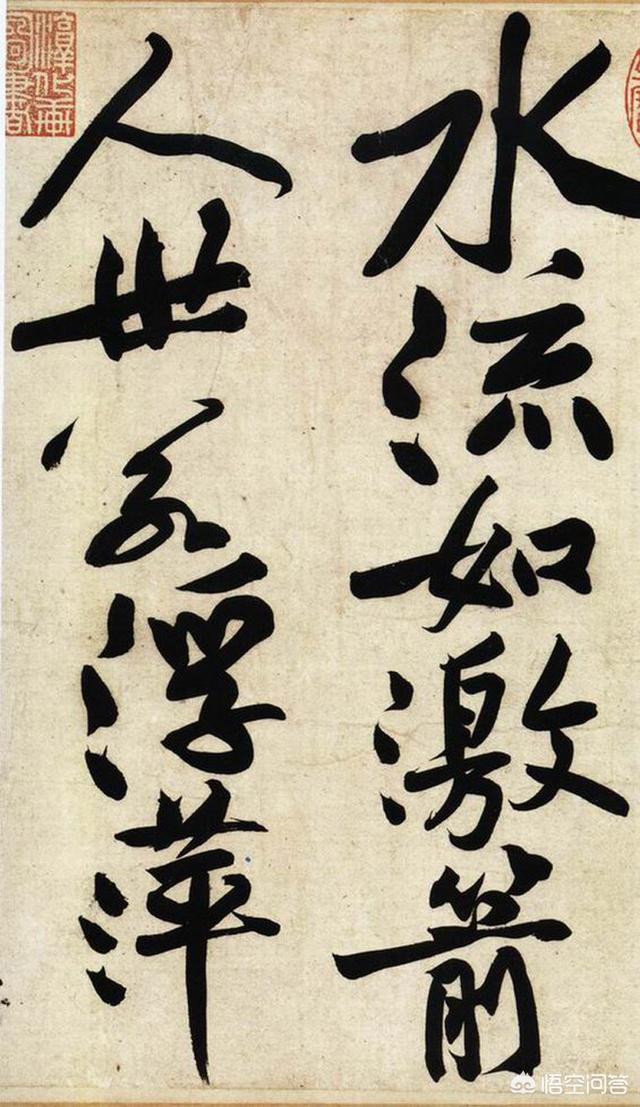 水流如激箭
人世若浮萍
悟空问答